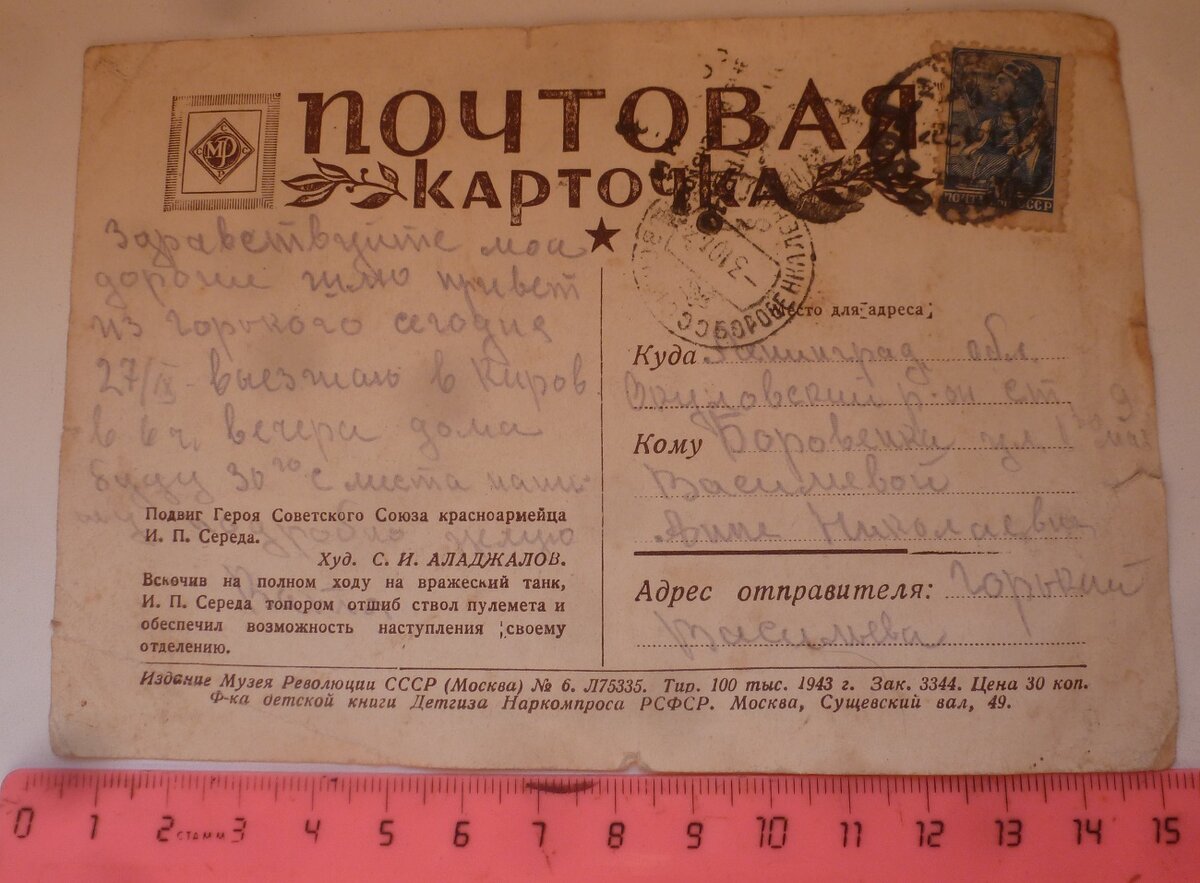 ПОЧТОВАЯ
КАРТОЧКА
Здравствуйте мои
дорогие шлю привет
из Горького сегодня
27/IX выезжаю в Киров
в 6 ч. вечера дома
буду 30го с места напи-
Подвиг Героя Советского Союза красноармейца
И. П. Середа.
Худ. С. И. АЛАДЖАЛОВ.
Вскочив на полном ходу на вражеский танк,
И. П. Середа топором отшиб ствол пулемета и
обеспечил возможность наступления своему
отделению.
Место для адреса
Куда Ленинград обл.
Окуловский р-он ст
Кому Боровенка ул 1го мая 9
Васильевой
Анне Николаевне
Адрес отправителя: Горький
Васильева
Издание Музея Революции СССР (Москва) № 6. Л75335. Тир. 100 тыс. 1943 г. Зак. 3344. Цена 30 коп.
Ф-ка детской книги Детгиза Наркомпроса РСФСР. Москва, Сущевский вал, 49.
0 1 2 3 4 5 6 7 8 9 10 11 12 13 14 15